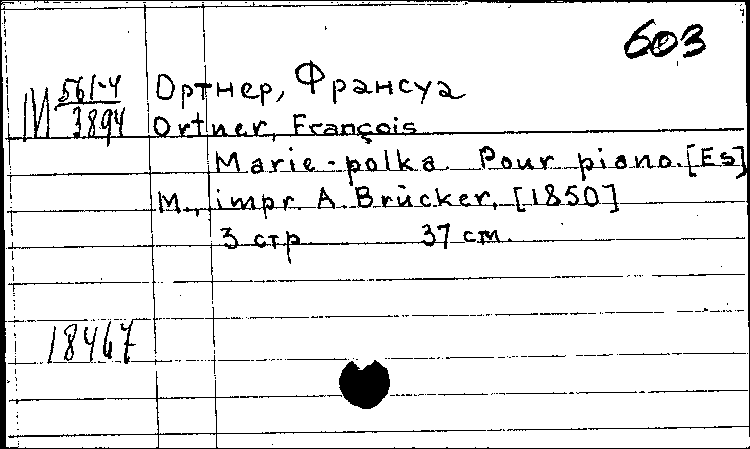 603
М 561-4/3894
Ортнер, Франсуа
Ortner, François
Marie-polka. Pour piano. [Es]
M., impr. A. Brücker, [1850]
3 стр. 37 см.
18467